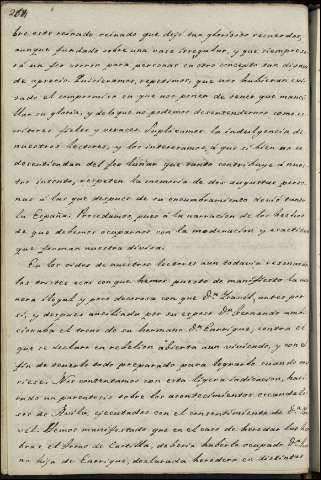 264
bre este reinado que dejó tan gloriosos recuerdos,
aunque fundado sobre una vase irregular, y que siempre se
rá un feo vorron para personas en otro concepto tan dignas
de aprecio. Quisieramos, repetimos, que nos hubieran evi
tado el compromiso en que nos ponen de tener que manci
llar su gloria, y de lo que no podemos desentendernos como es
critores fieles y veraces. Suplicamos la indulgencia de
nuestros lectores, y los interesamos, á que si bien no se
desentiendan del feo lunar que tanto contribuye á nues
tro intento, respeten la memoria de dos augustas perso
nas á las que despues de su encumbramiento devió tanto
la España. Procedamos, pues á la narracion de los hechos
de que debemos ocuparnos con la moderacion y exactitud
que forman nuestra divisa.
En los oidos de nuestros lectores aun todavia resonarán
los tristes ecos con que hemos puesto de manifiesto la ma
nera ilegal y poco decorosa con que D.ª Isavel, antes por
sí, y despues auxiliada por su esposo D.n Fernando ambi
cionaba el trono de su hermano D.n Enrrique, contra el
que se declaró en rebelion abierta aun viviendo, y con el
fin de tenerlo todo preparado para lograrlo cuando mu
riese. Nos contentamos con esta ligera indicacion, hacien
do un parentesis sobre los acontecimientos escandalo
sos de Avila, ejecutados con el consentimiento de D.ª Isa
vel. Hemos manifestado que en el caso de heredar las hem
bras el Trono de Castilla, deberia haberlo ocupado D.ª Jua
na hija de Enrrique, declarada heredera en distintas